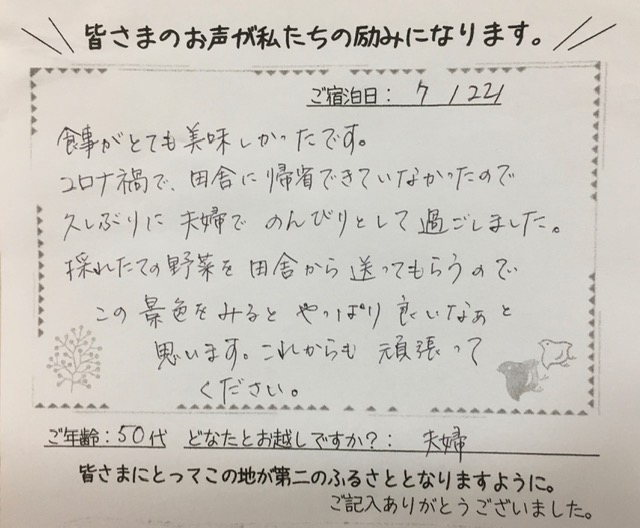 皆さまのお声が私たちの励みになります。
ご宿泊日: 7/22
食事がとても美味しかったです。
コロナ禍で、田舎に帰省できていなかったので
久しぶりに夫婦でのんびりとして過ごしました。
採れたての野菜を田舎から送ってもらうので
この景色をみるとやっぱり良いなぁと
思います。これからも頑張って
ください。
ご年齢:50代 どなたとお越しですか?: 夫婦
皆さまにとってこの地が第二のふるさととなりますように。
ご記入ありがとうございました。